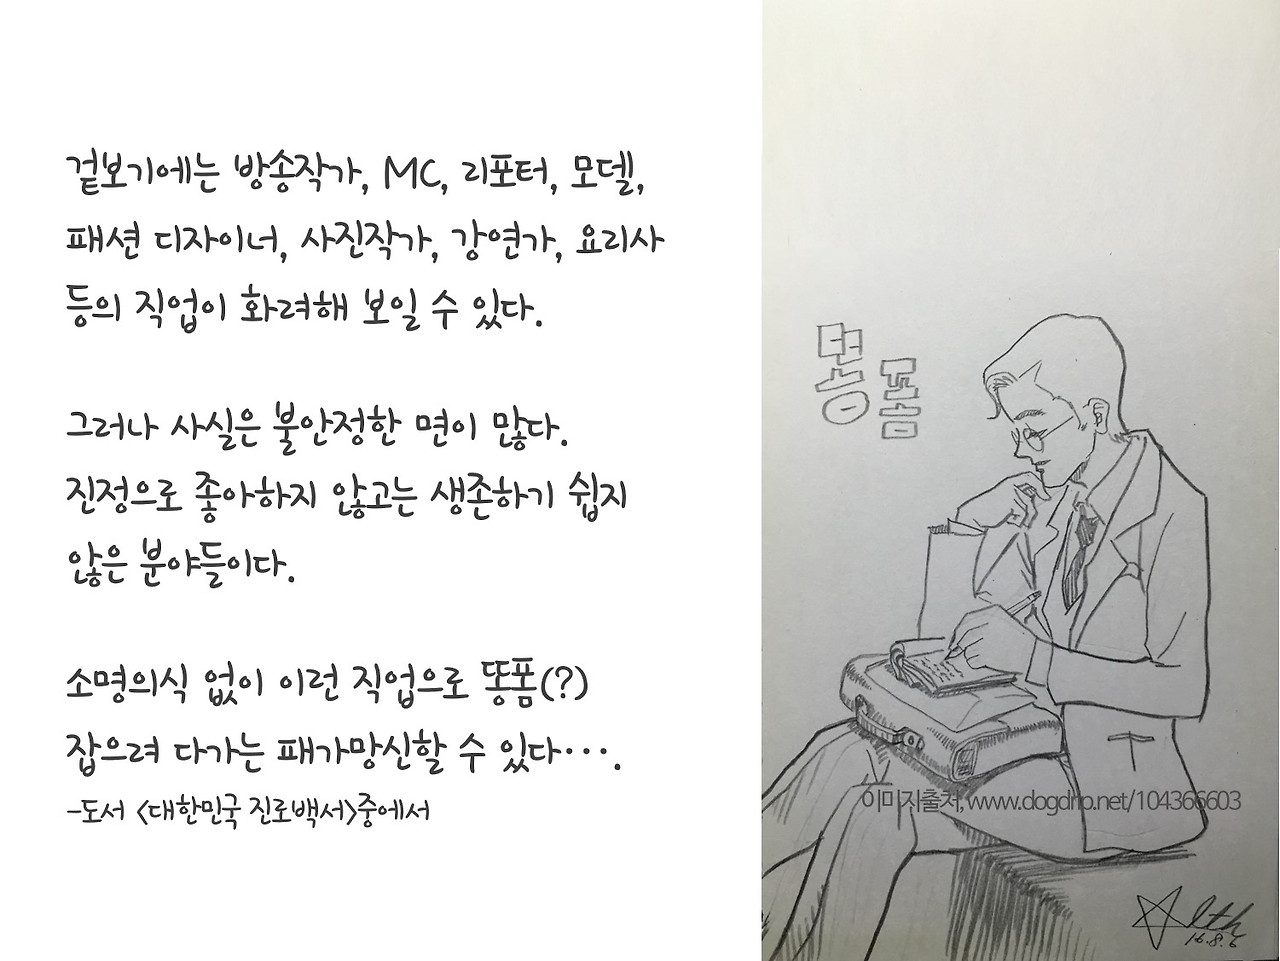 겉보기에는 방송작가, MC, 리포터, 모델,
패션 디자이너, 사진작가, 강연가, 요리사
등의 직업이 화려해 보일 수 있다.
그러나 사실은 불안정한 면이 많다.
진정으로 좋아하지 않고는 생존하기 쉽지
않은 분야들이다.
소명의식 없이 이런 직업으로 똥폼(?)
잡으려 다가는 패가망신할 수 있다···.
-도서 <대한민국 진로백서>중에서
똥폼
이미지출처, www.dogdrip.net/104366603
16.8.6